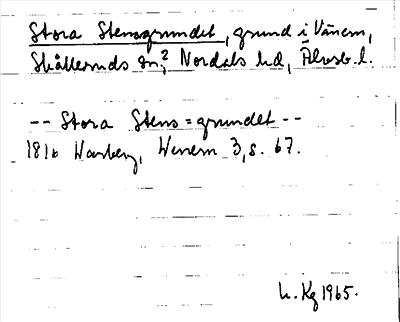 Stora Stensgrundet, grund i Vänern,
Skålleruds sn,? Nordals hd, Älvsb. l.
-- Stora Stens=grundet --
1816 Warberg, Wenern 3, s. 67.
L. Kg 1965.